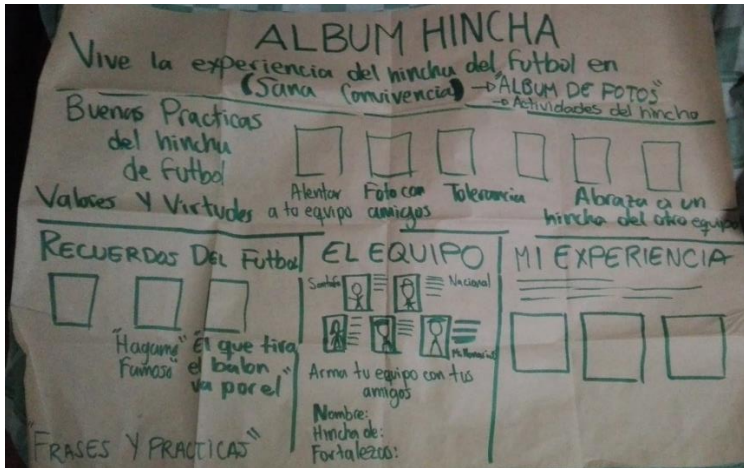 ALBUM HINCHA
Vive la experiencia del hincha del futbol en
(Sana Convivencia) → "ALBUM DE FOTOS"
→ Actividades del hincha
Buenas Practicas
del hincha
de futbol
Valores Y Virtudes
Alentar
a to equipo
Foto con
amigos
Tolerancia
Abraza a un
hincha del otro equipo
RECUERDOS DEL Futbol
"Hagame
Famoso"
"El que tira
el balon
va por el"
"FRASES Y PRACTICAS"
EL EQUIPO
Santafe
Nacional
Millonarios
Arma tu equipo con tus
amigos
Nombre:
Hincha de:
Fortalezas:
MI EXPERIENCIA